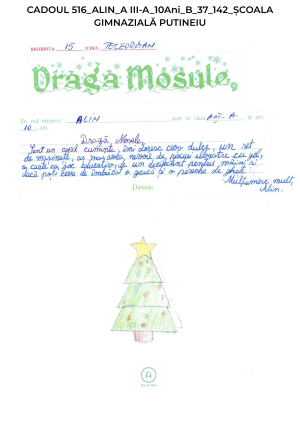 CADOUL 516_ALIN_A III-A_10Ani_B_37_142_ȘCOALA
GIMNAZIALĂ PUTINEIU
DORINTA 15 JUDEȚ TELEORMAN
Dragă Moșule,
Eu mă numesc ALIN sunt în clasa A III- A și am
10 ani.
Dragă Moșule,
Sunt un copil cuminte, îmi doresc ceva dulce, un set
de mașinuțe, aș mai avea nevoie de pixuri albastre cu gel,
o carte cu joc educativ, de un dezinfectant pentru mâini și
dacă poți ceva de îmbrăcat o geacă și o pereche de ghete.
Mulțumesc mult,
Alin.
Desen: